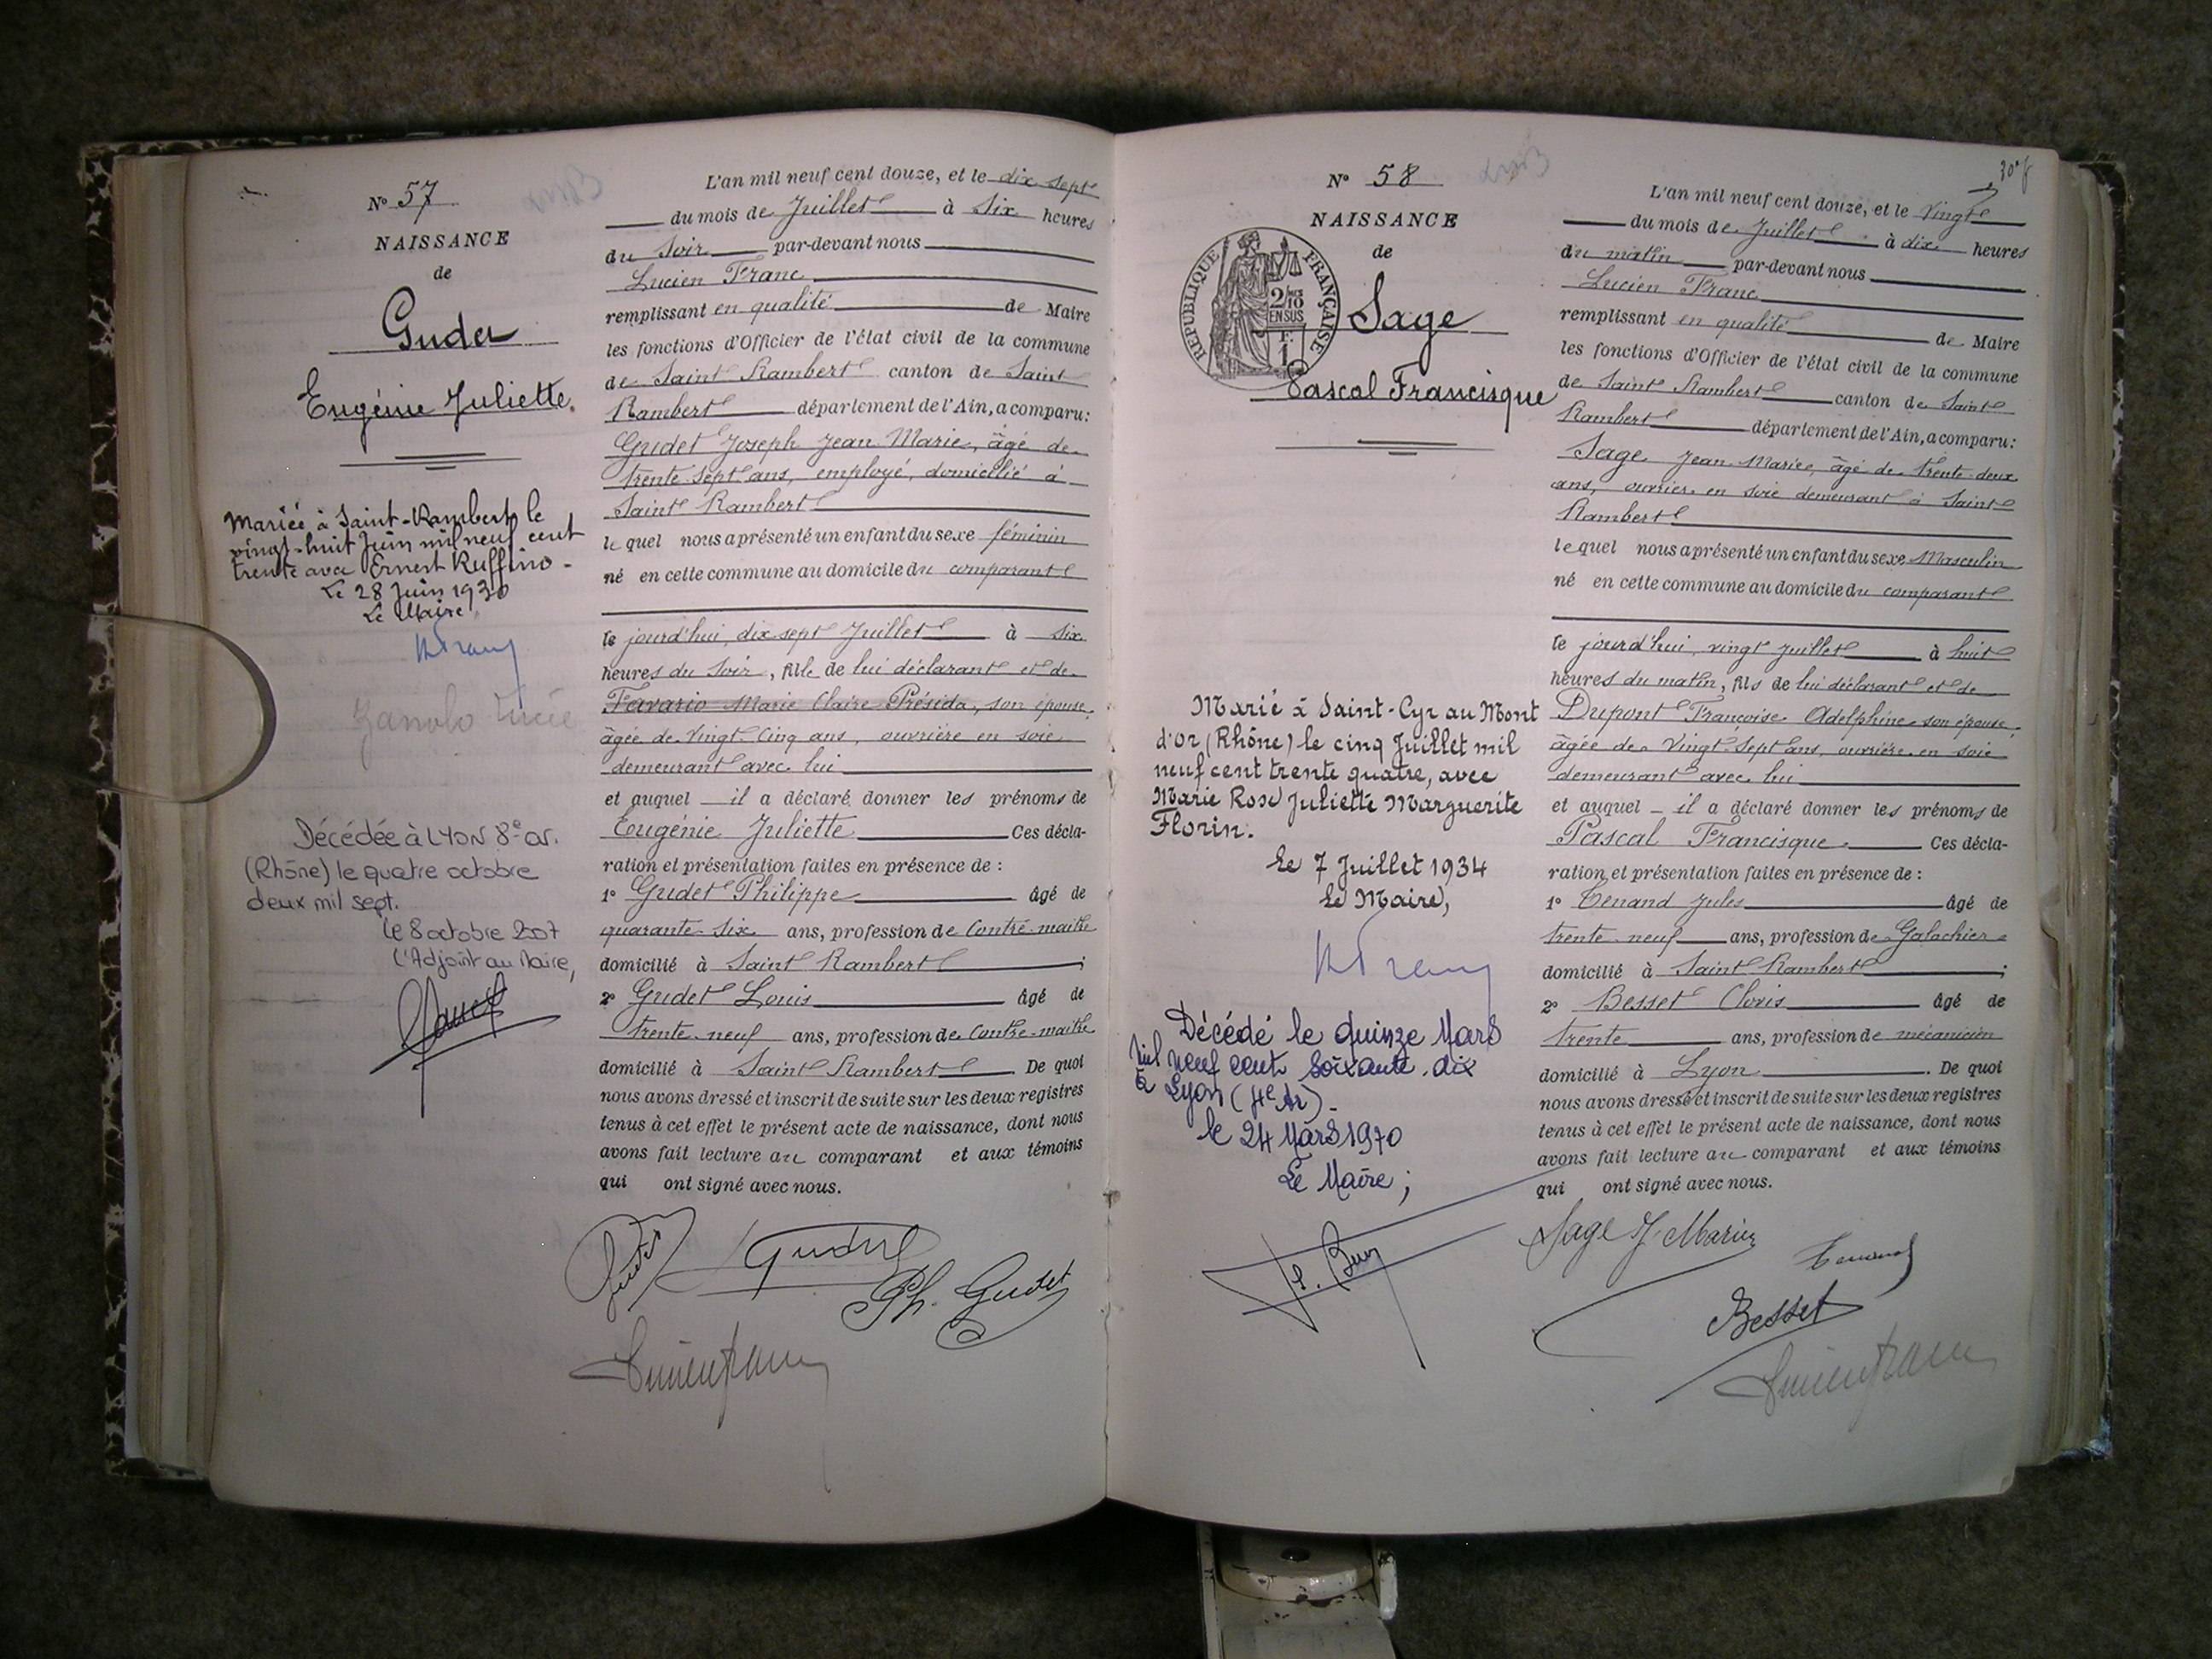 N° 57
NAISSANCE
de
Gudet
Eugénie Juliette.
Mariée à Saint-Rambert le
vingt-huit Juin mil neuf cent
trente avec Ernest Ruffino -
Le 28 Juin 1930
Le Maire,
Décédée à LYON 8e ar.
(Rhône) le quatre octobre
deux mil sept.
le 8 octobre 2007
L'Adjoint au Maire,
L'an mil neuf cent douze, et le dix sept
du mois de Juillet à Six heures
du Soir par-devant nous
Lucien Franc
remplissant en qualité de Maire
les fonctions d'Officier de l'état civil de la commune
de Saint Rambert canton de Saint
Rambert département de l'Ain, a comparu:
Gudet Joseph Jean Marie, âgé de
trente-sept ans, employé, domicilié à
Saint Rambert
le quel nous a présenté un enfant du sexe féminin
né en cette commune au domicile du comparant
le jourd'hui, dix sept Juillet à Six
heures du Soir, fille de lui déclarant et de
Favario Marie Claire Présida, son épouse,
âgée de Vingt-Cinq ans, ouvrière en soie
demeurant avec lui
et auquel il a déclaré donner les prénoms de
Eugénie Juliette Ces décla-
ration et présentation faites en présence de :
1° Gudet Philippe âgé de
quarante-six ans, profession de Contre-maitre
domicilié à Saint Rambert ;
2° Gudet Louis âgé de
trente-neuf ans, profession de Contre-maitre
domicilié à Saint Rambert. De quoi
nous avons dressé et inscrit de suite sur les deux registres
tenus à cet effet le présent acte de naissance, dont nous
avons fait lecture au comparant et aux témoins
qui ont signé avec nous.
Gudet
Ph. Gudet
N° 58
NAISSANCE
de
REPUBLIQUE FRANÇAISE
2/10 EN SUS
Sage
Pascal Francisque
Marié à Saint-Cyr au Mont
d'or (Rhône) le cinq Juillet mil
neuf cent trente quatre, avec
Marie Rose Juliette Marguerite
Florin.
Le 7 Juillet 1934
Le Maire,
Décédé le Quinze Mars
Mil Neuf cent Soixante-dix
à Lyon (4e Ar).
le 24 Mars 1970
Le Maire ;
L'an mil neuf cent douze, et le Vingt
du mois de Juillet à dix heures
du matin par-devant nous
Lucien Franc
remplissant en qualité de Maire
les fonctions d'Officier de l'état civil de la commune
de Saint Rambert canton de Saint
Rambert département de l'Ain, a comparu:
Sage Jean-Marie, âgé de trente-deux
ans, ouvrier en soie demeurant à Saint
Rambert
le quel nous a présenté un enfant du sexe Masculin
né en cette commune au domicile du comparant
le jourd'hui, vingt juillet à huit
heures du matin, fils de lui déclarant et de
Dupont Françoise Adelphine son épouse,
âgée de Vingt-Sept ans, ouvrière en soie
demeurant avec lui
et auquel il a déclaré donner les prénoms de
Pascal Francisque. Ces décla-
ration et présentation faites en présence de :
1° Tenand Jules âgé de
trente-neuf ans, profession de Galochier
domicilié à Saint Rambert ;
2° Besset Clovis âgé de
trente ans, profession de mécanicien
domicilié à Lyon. De quoi
nous avons dressé et inscrit de suite sur les deux registres
tenus à cet effet le présent acte de naissance, dont nous
avons fait lecture au comparant et aux témoins
qui ont signé avec nous.
Sage J-Marie
Tenand
Besset